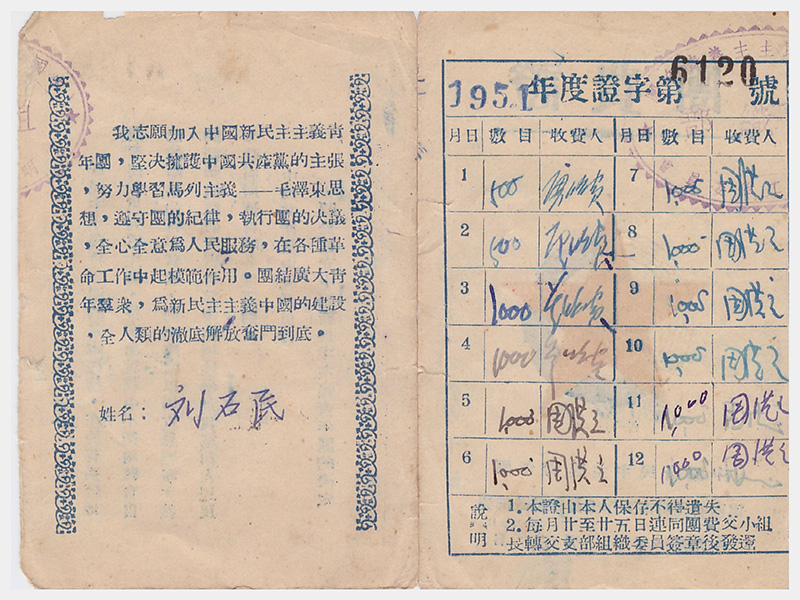 我志願加入中國新民主主義青
年團，堅决擁護中國共產黨的主張
，努力學習馬列主義——毛澤東思
想，遵守團的紀律，執行團的决議
，全心全意為人民服務，在各種革
命工作中起模範作用。團結廣大青
年羣衆，為新民主主義中國的建設
，全人類的澈底解放奮鬥到底。
姓名：刘石民
1951年度證字第6120號
月日 數目 收費人 月日 數目 收費人
1 500 7 1,000
2 500 8 1,000
3 1000 9 1,000
4 1000 10 1,000
5 1,000 11 1,000
6 1,000 12 1,000
說明
1.本證由本人保存不得遺失
2.每月廿至廿五日連同團費交小組
長轉交支部組織委員簽章後發還